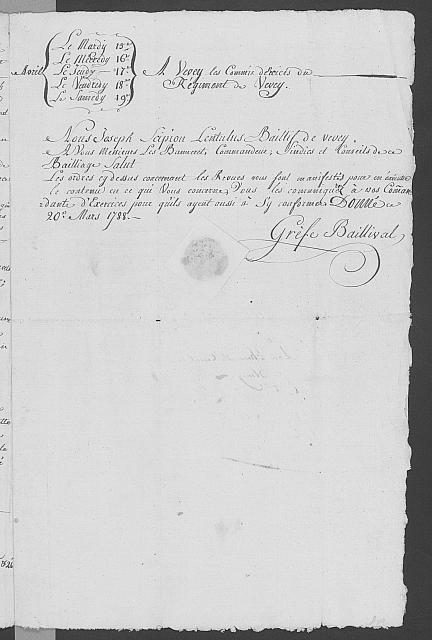 Avril
Le Mardy 15.e
Le Mecredy 16.e
Le Jeudy — 17.e
Le Vendredy 18.e
Le Samedy 19.e
A Vevey les Commis d'exercices du
Régiment de Vevey.
Nous Joseph Scipion Lentulus Baillif de vevey
A Vous Messieurs Les Bannerets, Commandeur, Sindics et Conseils de ce
Bailliage Salut
Les ordres cydessus concernant les Revues vous sont manifestés pour en
le contenu en ce qui Vous concerne, Vous les communiquerés à nos Comman
dants d'Exercices pour qu'ils ayent aussi à s'y conformer Donné ce
20.e Mars 1788. —
Gréfe Baillival